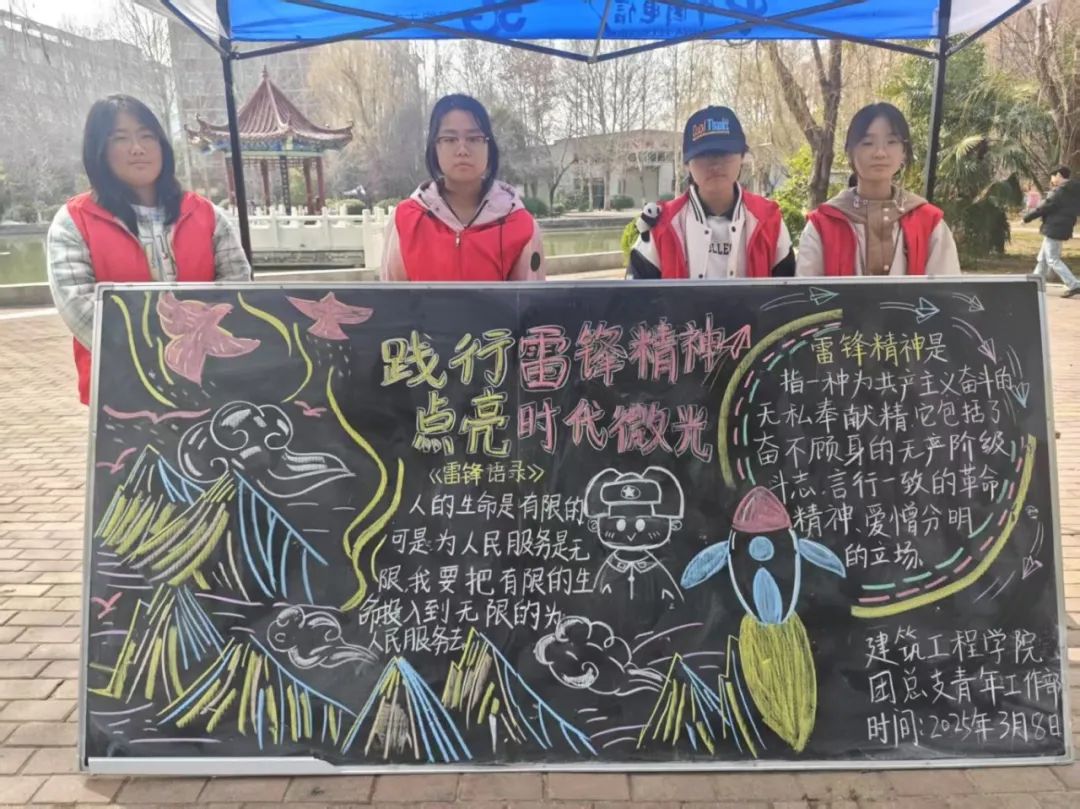 中国电信
践行雷锋精神
点亮时代微光
《雷锋语录》
人的生命是有限的
可是为人民服务是无
限,我要把有限的生
命投入到无限的为
人民服务去
雷锋精神是
指一种为共产主义奋斗的
无私奉献精.它包括了
奋不顾身的无产阶级
斗志.言行一致的革命
精神.爱憎分明
的立场.
建筑工程学院
团总支青年工作部
时间:2025年3月8日